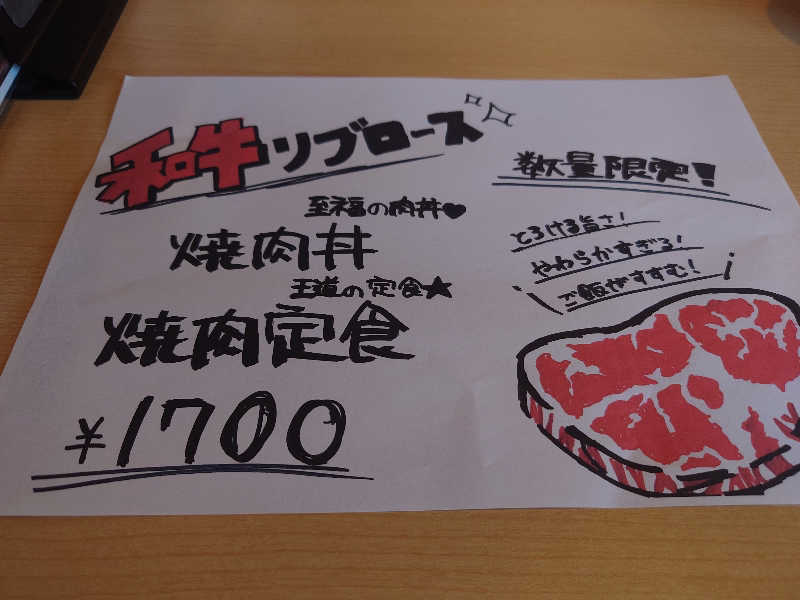 和牛リブロース
数量限定!
至福の肉丼♥
焼肉丼
王道の定食★
焼肉定食
¥1700
とろける旨さ!
やわらかすぎる!
ご飯がすすむ!